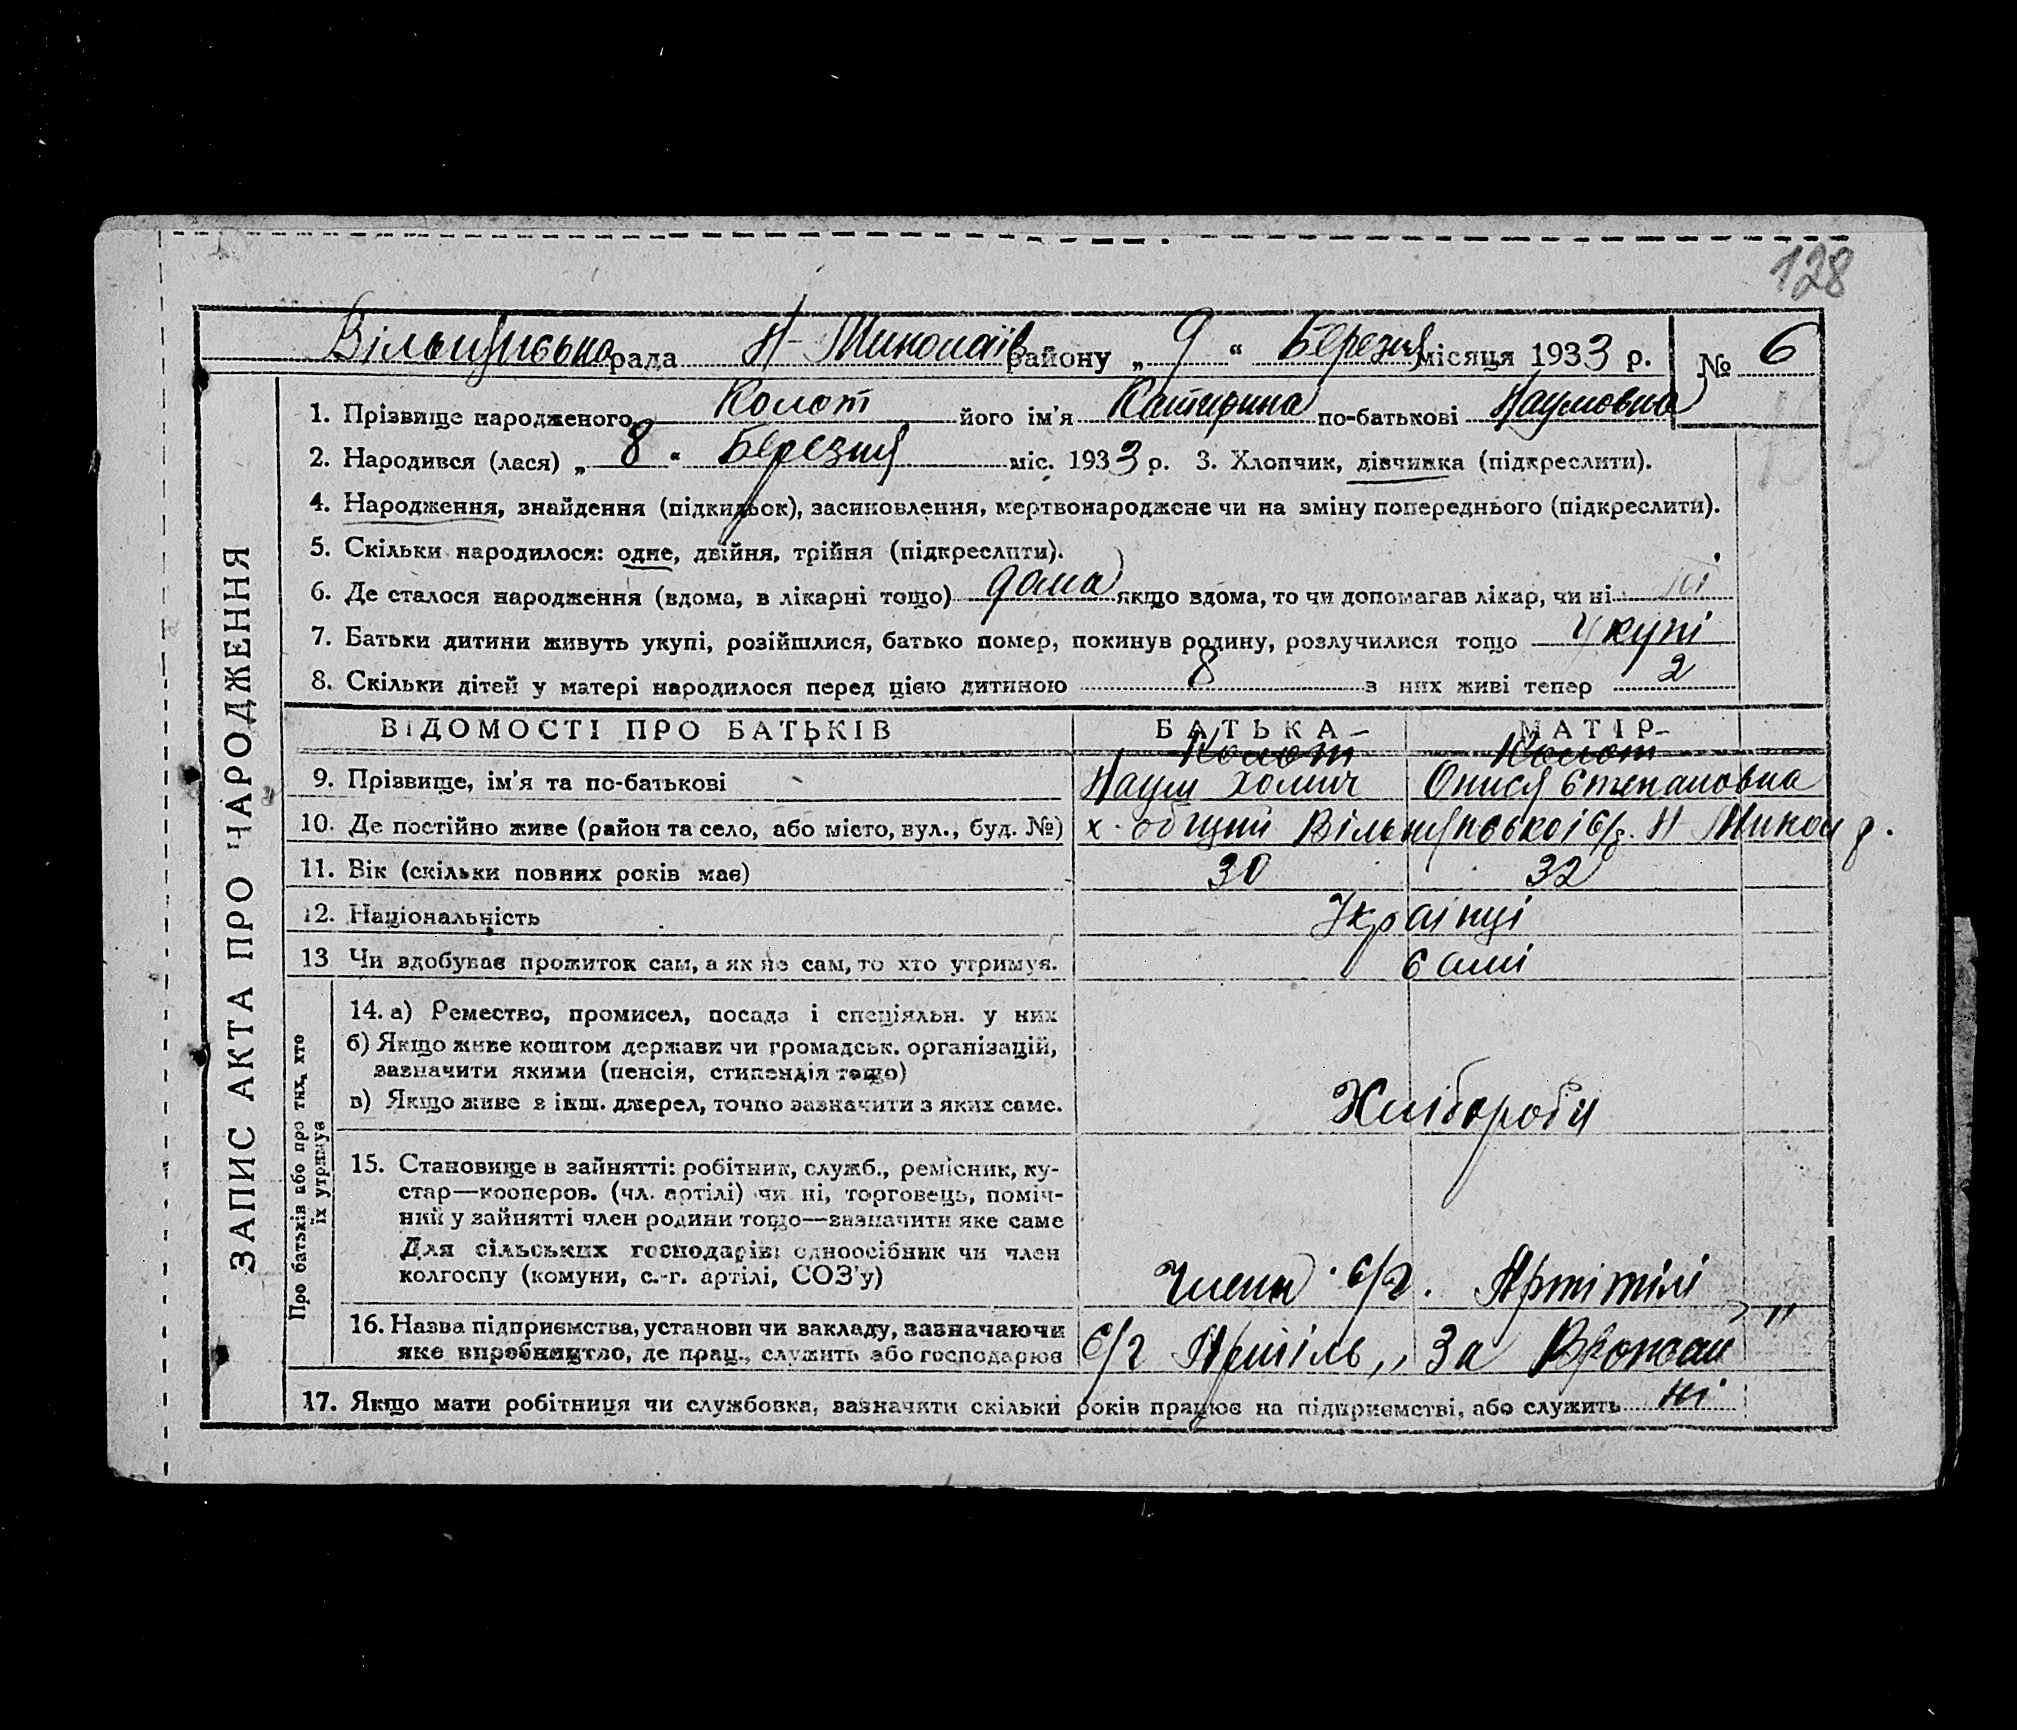 128
Вільшанська рада Н-Миколаїв району „ 9 “ Березня місяця 1933 р. № 6
1. Прізвище народженого Колот його ім'я Катерина по-батькові Наумовна
2. Народився (лася) „ 8 “ Березня міс. 1933 р. 3. Хлопчик, дівчинка (підкреслити).
4. Народження, знайдення (підкидьок), засиновлення, мертвонароджене чи на зміну попереднього (підкреслити).
5. Скільки народилося: одне, двійня, трійня (підкреслити).
6. Де сталося народження (вдома, в лікарні тощо) дома якщо вдома, то чи допомагав лікар, чи ні ні
7. Батьки дитини живуть укупі, розійшлися, батько помер, покинув родину, розлучилися тощо Укупі
8. Скільки дітей у матері народилося перед цією дитиною 8 з них живі тепер 2
ВІДОМОСТІ ПРО БАТЬКІВ БАТЬКА МАТІР
Колот Колот
9. Прізвище, ім'я та по-батькові Наум Хомич Онися Степановна
10. Де постійно живе (район та село, або місто, вул., буд. №) х. с/р. Н Микол р.
11. Вік (скільки повних років має) 30 32
12. Національність Українці
13 Чи здобуває прожиток сам, а як не сам, то хто утримує. Самі
14. а) Ремество, промисел, посада і спеціяльн. у них
б) Якщо живе коштом держави чи громадськ. організацій,
зазначити якими (пенсія, стипендія тощо)
в) Якщо живе з інш. джерел, точно зазначити з яких саме. Хлібороби
15. Становище в зайнятті: робітник, служб., ремісник, ку-
стар—кооперов. (чл. артілі) чи ні, торговець, поміч-
ний у зайнятті член родини тощо—зазначити яке саме
Для сільських господарів: одноосібник чи член
колгоспу (комуни, с.-г. артілі, СОЗ'у) Члени с/г. Артітілі
16. Назва підприємства, установи чи закладу, зазначаючи
яке виробництво, де прац., служить або господарює с/г Артіль „ За Врожаи "
17. Якщо мати робітниця чи службовка, зазначити скільки років працює на підприємстві, або служить ні
ЗАПИС АКТА ПРО НАРОДЖЕННЯ
Про батьків або про тих, хто
їх утримує